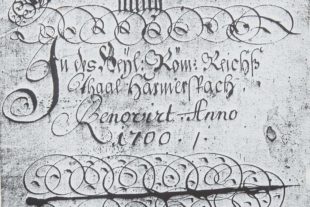 In dis Heyl: Röm: Reichß
Thaal Harmerspach.
Renovirt Anno
1700.